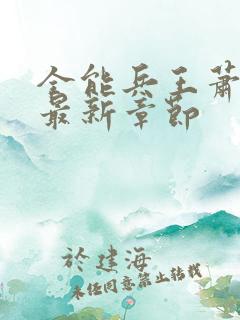 全能兵王萧
最新章节
於建海
未经同意禁止转载